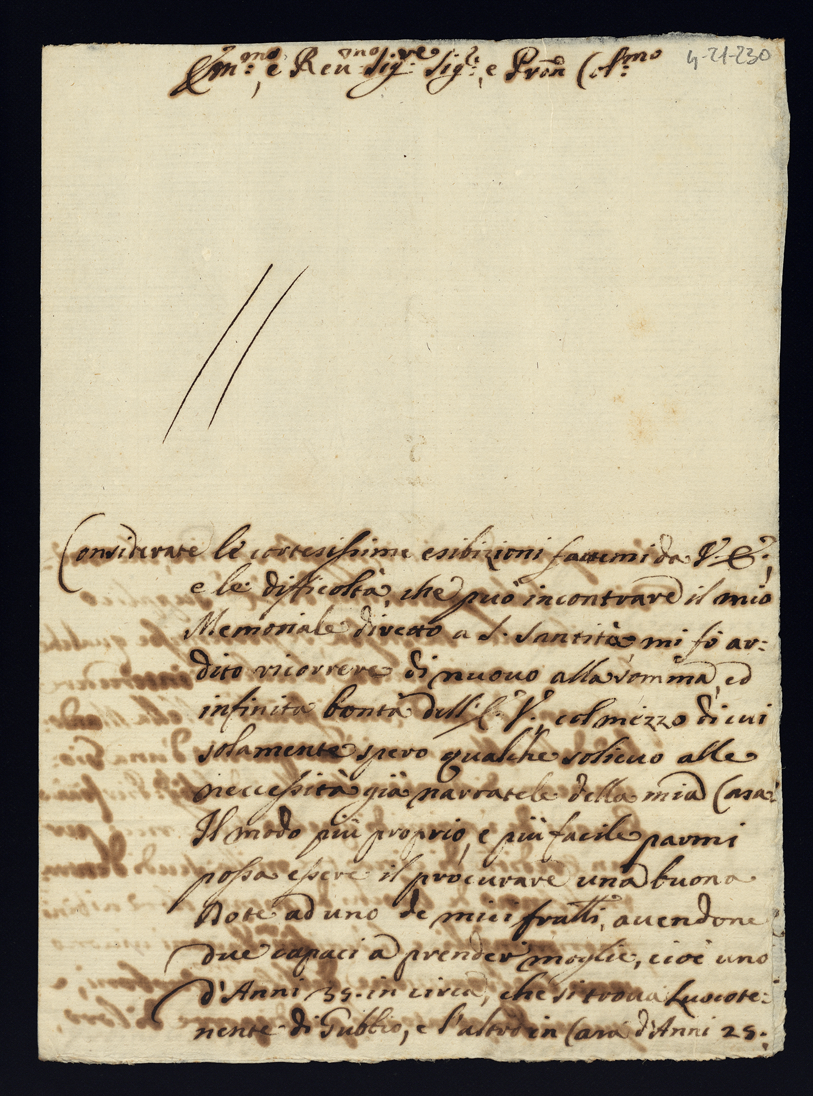 Em:mo e Reu:mo Sig:re Sig:re, e Pron Col:mo
4-21-230
Considerate le cortesissime esibizioni fattemi da V. E:,
e le difficoltà, che può incontrare il mio
Memoriale diretto a S. Santità mi fò ar-
dito ricorrere di nuovo alla somma, ed
infinita bontà dell' E. V., col mezzo di cui
solamente spero qualche solieuo alle
neccessità già narratele della mia Casa:
Il modo più proprio, e più facile parmi
possa essere il procurare una buona
Dote ad uno de miei fratti, auendone
due capaci à prender moglie, cioè uno
d'Anni 35. in circa, che si troua Luocote-
nente di Gubbio, e l'altro in Casa d'Anni 25.